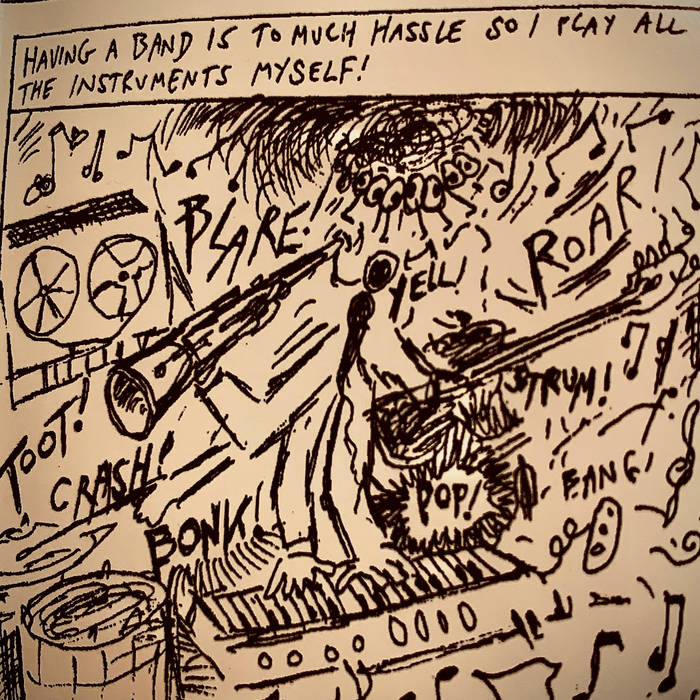 HAVING A BAND IS TO MUCH HASSLE SO I PLAY ALL
THE INSTRUMENTS MYSELF!
BLARE!
ROAR!
YELL!
STRUM!
TOOT!
CRASH!
BANG!
POP!
BONK!